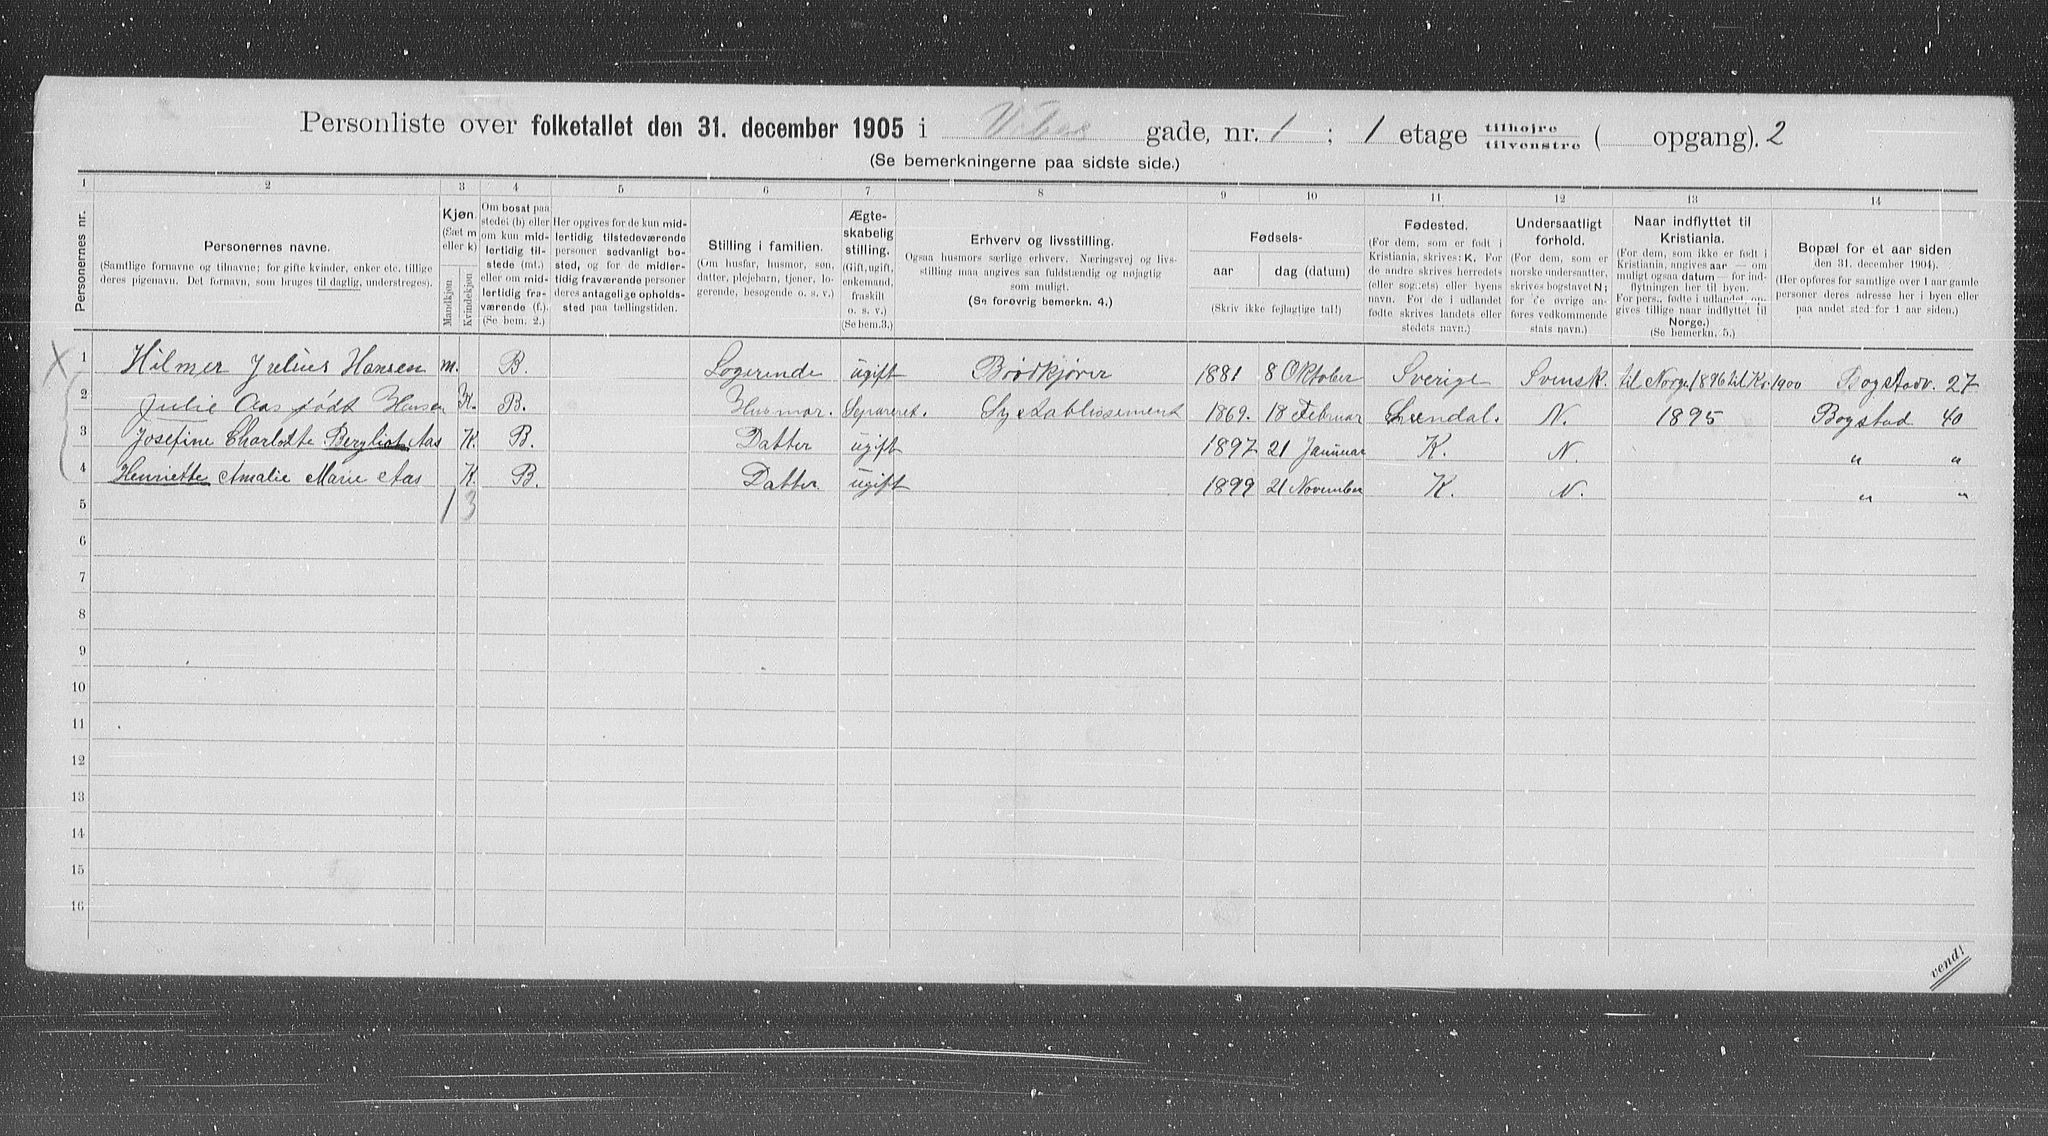 Personliste over folketallet den 31. december 1905 i Vibes gade, nr. 1 ; 1 etage tilhøjre / tilvenstre ( opgang). 2
(Se bemerkningerne paa sidste side.)
1 2 3 4 5 6 7 8 9 10 11 12 13 14
Personernes nr.
Personernes navne.
(Samtlige fornavne og tilnavne; for gifte kvinder, enker etc. tillige
deres pigenavn. Det fornavn, som bruges til daglig, understreges).
Kjøn.
(Sæt m
eller k)
Mandkjøn
Kvindekjøn
Om bosat paa
stedet (b) eller
om kun mid-
lertidig til-
stede (mt.)
eller om mid-
lertidig fra-
værende (f.).
(Se bem. 2.)
Her opgives for de kun mid-
lertidig tilstedeværende
personer sedvanligt bo-
sted, og for de midler-
tidig fraværende personer
deres antagelige opholds-
sted paa tællingstiden.
Stilling i familien.
(Om husfar, husmor, søn,
datter, plejebarn, tjener, lo-
gerende, besøgende o. s. v.)
Ægte-
skabelig
stilling.
(Gift, ugift,
enkemand,
fraskilt
o. s. v.)
(Se bem.3.)
Erhverv og livsstilling.
Ogsaa husmors særlige erhverv. Næringsvej og livs-
stilling maa angives saa fuldstændig og nøjagtig
som muligt.
(Se forøvrig bemerkn. 4.)
Fødsels-
aar dag (datum)
(Skriv ikke fejlagtige tal!)
Fødested.
(For dem, som er født i
Kristiania, skrives: K. For
de andre skrives herredets
(eller sognets) eller byens
navn. For de i udlandet
fødte skrives landets eller
stedets navn.)
Undersaatligt
forhold.
(For dem, som er
norske undersaatter,
skrives bogstavet N;
for de øvrige an-
føres vedkommende
stats navn.)
Naar indflyttet til
Kristiania.
(For dem, som ikke er født i
Kristiania, angives aar — om
muligt ogsaa datum — for ind-
flytningen her til byen.
For pers., fødte i udlandet, an-
gives tillige naar indflyttet til
Norge.)
(Se bemerkn. 5.)
Bopæl for et aar siden
den 31. december 1904).
(Her opføres for samtlige over 1 aar gamle
personer deres adresse her i byen eller
paa andet sted for 1 aar siden.)
X 1 Hilmer Julius Hansen m. B. Logerende ugift Brödkjører 1881 8 Oktober Sverige Svensk. til Norge 1896 til Kr. 1900 Bogstadv. 27
2 Julie Aas født Hansen K. B. Husmor. Separeret. Syetablissement 1869. 18 Februar N. 1895 Bogstad 40
3 Josefine Charlotte Bergliot Aas K. B. Datter ugift 1897 21 Januar K. N. " "
4 Henriette Amalie Marie Aas K. B. Datter ugift 1899 21 November K. N. " "
5 1 3
6
7
8
9
10
11
12
13
14
15
16
vend!